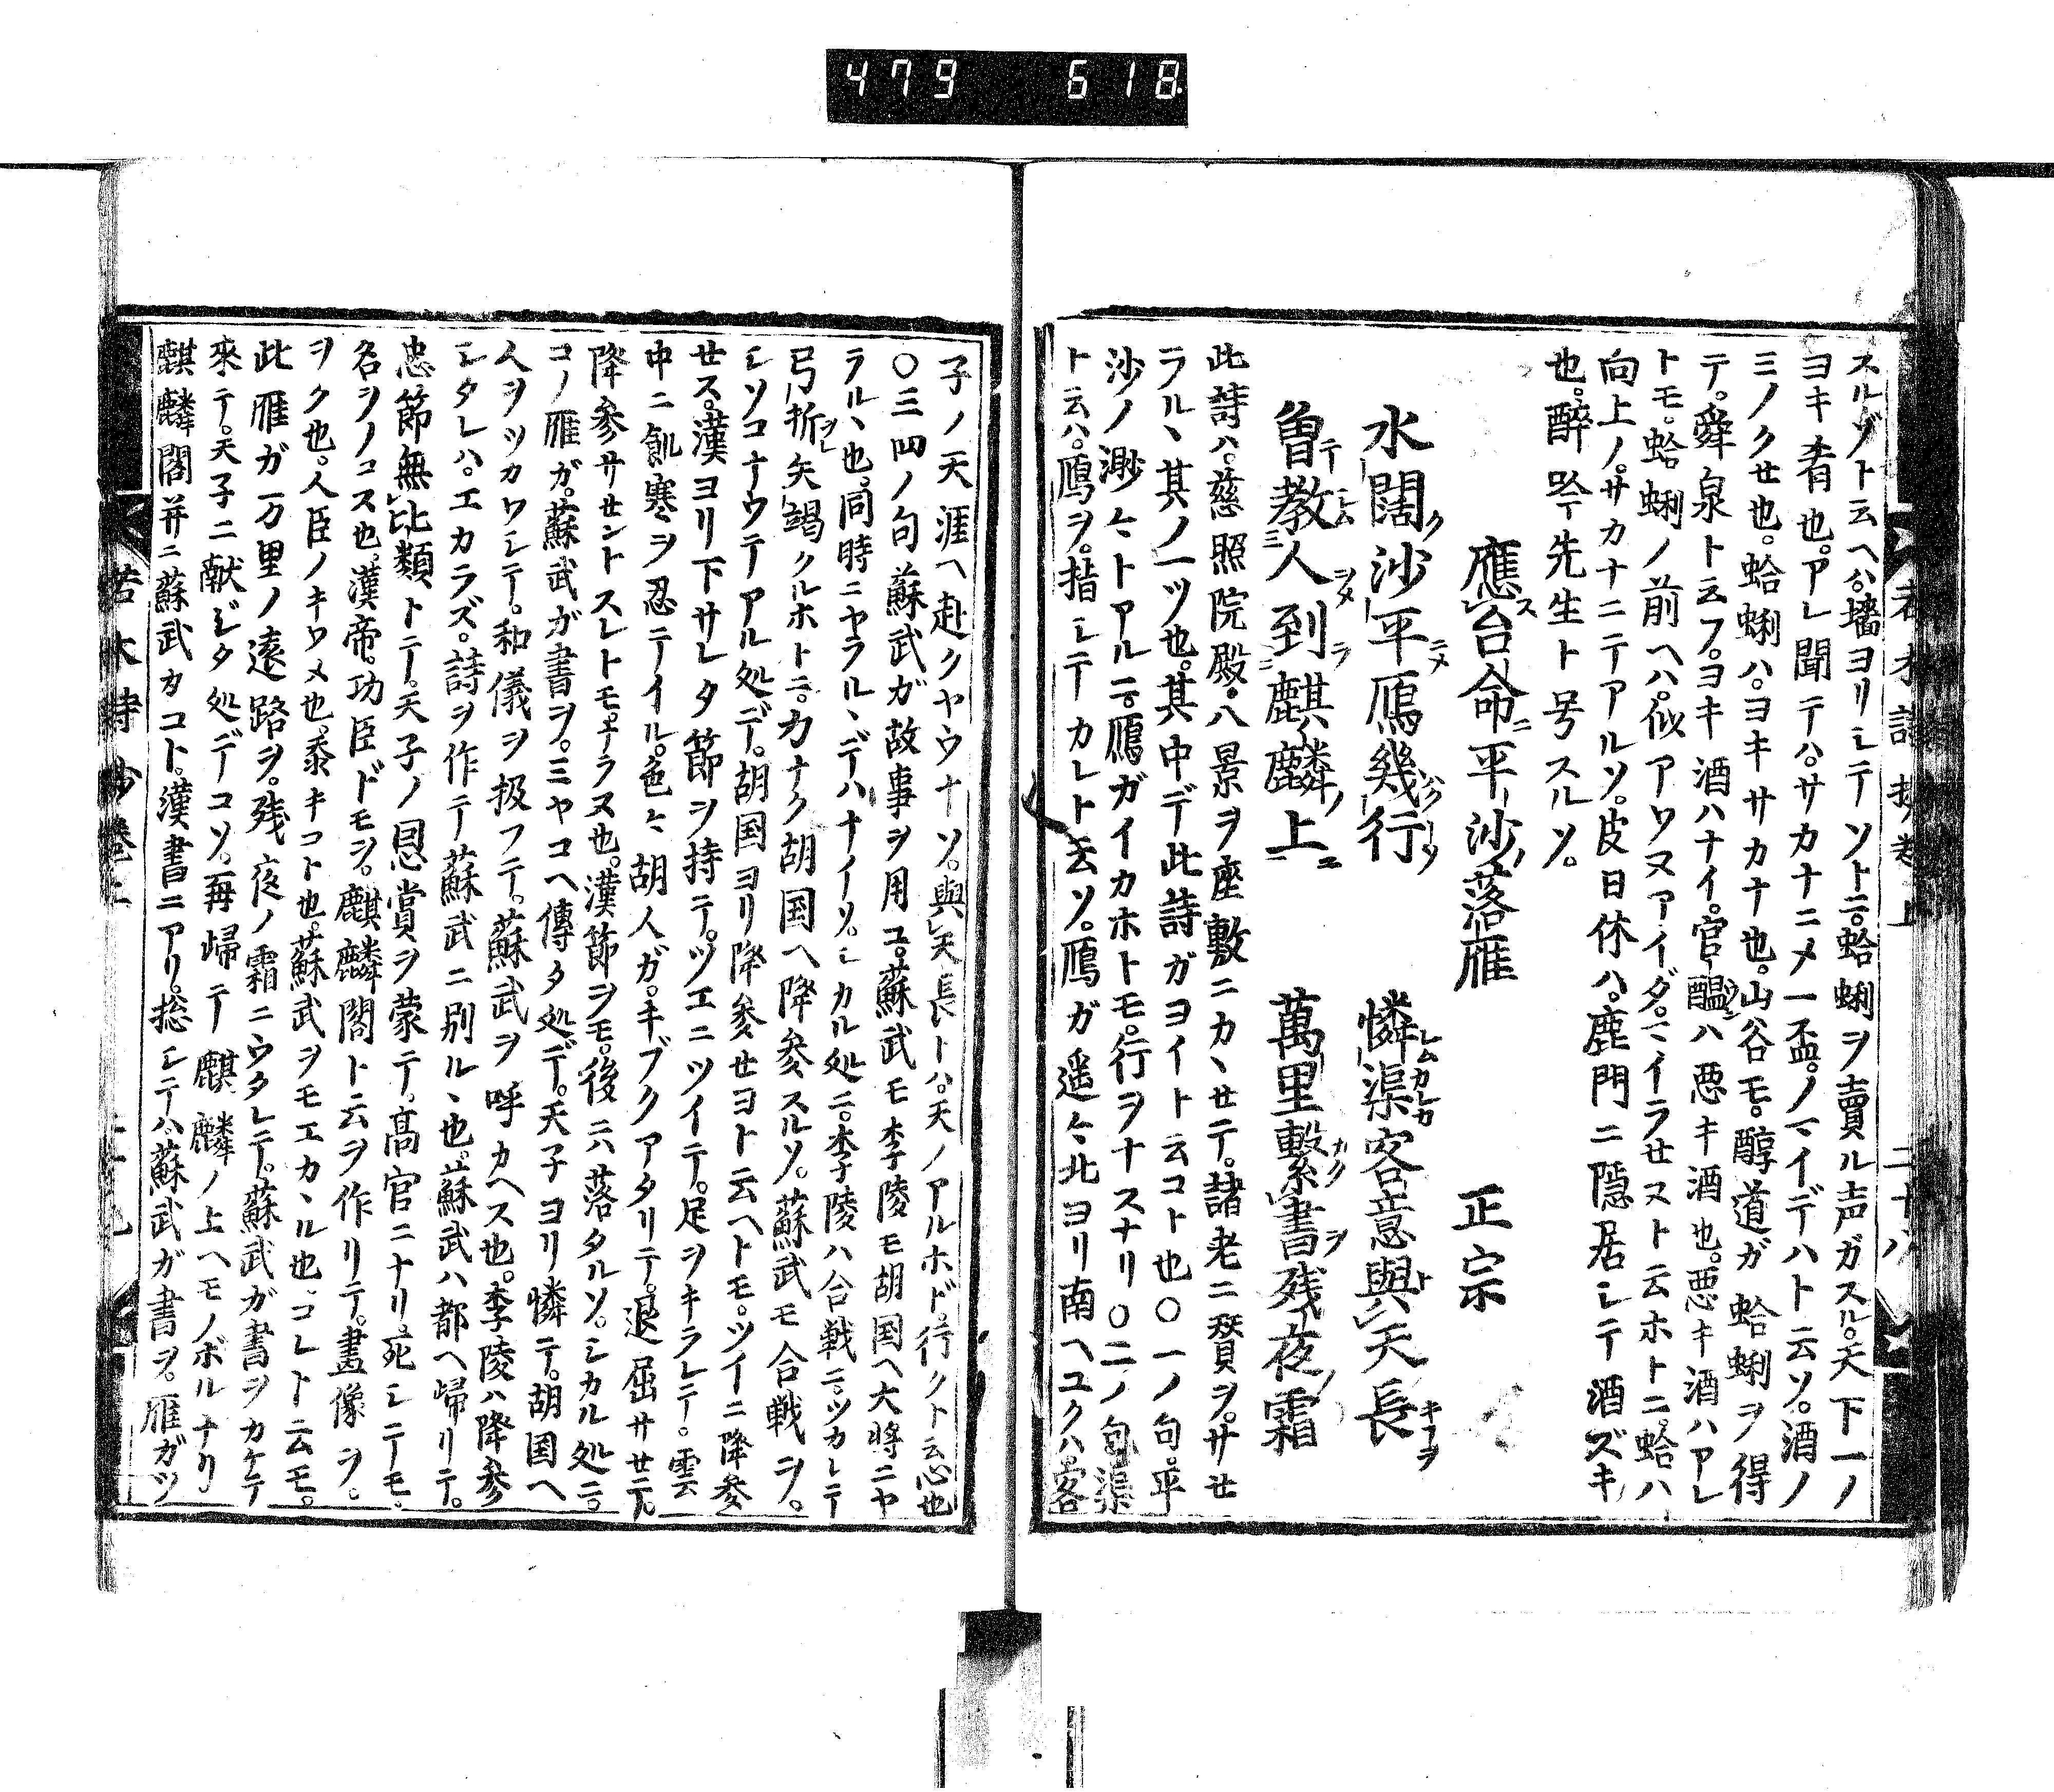 479 618
スルゾト云ヘハ。墻ヨリシテソトニ。蛤蜊ヲ賣ル声ガスル。天下一ノ
ヨキ肴也。アレ聞テハ。サカナニメ一盃。ノマイデハト云ソ。酒ノ
ミノクセ也。蛤蜊ハ。ヨキサカナ也。山谷モ。醇道ガ蛤蜊ヲ得
テ。舜泉ト云フ。ヨキ酒ハナイ。官醞ハ悪キ酒也。悪キ酒ハアレ
トモ。蛤蜊ノ前ヘハ。似アワヌアイダ。マイラセヌト云ホトニ。蛤ハ
向上ノ。サカナニテアルソ。皮日休ハ。鹿門ニ隠居シテ酒ズキ
也。醉吟先生ト号スルソ。
應台命平沙落雁 正宗
水闊沙平鴈幾行 憐渠客意與天長
曽教人到麒麟上 萬里繋書残夜霜
此詩ハ。慈照院殿。八景ヲ座敷ニカヽセテ。諸老ニ賛ヲ。サセ
ラルヽ其ノ一ツ也。其中デ此詩ガヨイト云コト也〇一ノ句。平
沙ノ渺々トアルニ。鴈ガイカホトモ。行ヲナスナリ〇二ノ句渠
ト云ハ。鴈ヲ。指シテカレト云ソ。鴈ガ遥々北ヨリ南ヘユクハ。客
若木詩抄巻上 二十八
子ノ天涯ヘ赴クヤウナソ。與天長トハ。天ノアルホド。行クト云心也
〇三四ノ句蘇武ガ故事ヲ用ユ。蘇武モ李陵モ胡国ヘ大将ニヤ
ラルヽ也。同時ニヤラルヽデハナイソ。シカル処ニ。李陵ハ合戦ニ。ツカレテ
弓折矢竭クルホトニ。力ナク胡国ヘ降参スルソ。蘇武モ合戦ヲ。
シソコナウテアル処デ。胡国ヨリ降参セヨト云ヘトモ。ツイニ降参
セス。漢ヨリ下サレタ節ヲ持テ。ツエニツイテ。足ヲキラレテ。雲
中ニ飢寒ヲ忍テイル。色々胡人ガ。キブクアタリテ。退屈サセテ。
降参サセントスレトモ。ナラヌ也。漢節ヲモ。後ニハ落タルソ。シカル処ニ。
コノ雁ガ。蘇武ガ書ヲ。ミヤコヘ傳タ処デ。天子ヨリ憐テ。胡国ヘ
人ヲツカワシテ。和儀ヲ扱フテ。蘇武ヲ呼カヘス也。李陵ハ降参
シタレハ。エカラズ。詩ヲ作テ蘇武ニ別ルヽ也。蘇武ハ都ヘ帰リテ。
忠節無比類トテ。天子ノ恩賞ヲ蒙テ。髙官ニナリ。死シテモ。
名ヲノコス也。漢帝。功臣ドモヲ。麒麟閣ト云ヲ作リテ。畫像ヲ。
ヲク也。人臣ノキワメ也。忝キコト也。蘇武ヲモエカヽル也。コレト云モ。
此雁ガ万里ノ遠路ヲ。残夜ノ霜ニウタレテ。蘇武ガ書ヲカケテ
來テ。天子ニ献ジタ処デコソ。再帰テ麒麟ノ上ヘモノボルナリ
麒麟閣并ニ蘇武カコト。漢書ニアリ。揔シテハ蘇武ガ書ヲ。雁ガツ
若木詩抄巻上